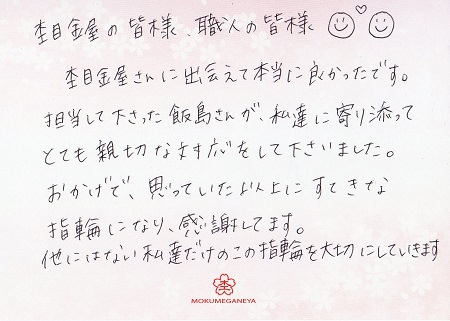 杢目金屋の皆様、職人の皆様
杢目金屋さんに出会えて本当に良かったです。
担当して下さった飯島さんが、私達に寄り添って
とても親切な対応をして下さいました。
おかげで、思っていた以上にすてきな
指輪になり、感謝してます。
他にはない私達だけのこの指輪を大切にしていきます
MOKUMEGANEYA